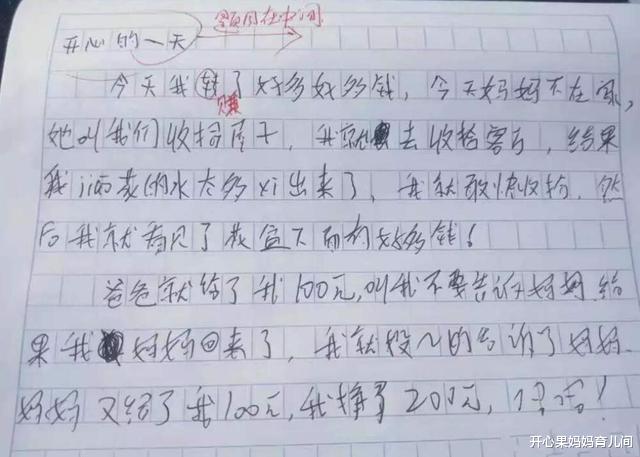 题目在中间
开心的一天
今天我了好多好多钱，今天妈妈不在家，
赚
她叫我们收拾房子，我就去收拾客，结果
我的水太多xi出来了，我就敢快收拾，然
后我就看见了下面有好多钱！
爸爸就给了我100元,叫我不要告诉妈妈结
果我妈妈回来了，我就的告诉了妈妈.
妈妈又给了我100元,我挣了200元,！
开心果妈妈育儿间